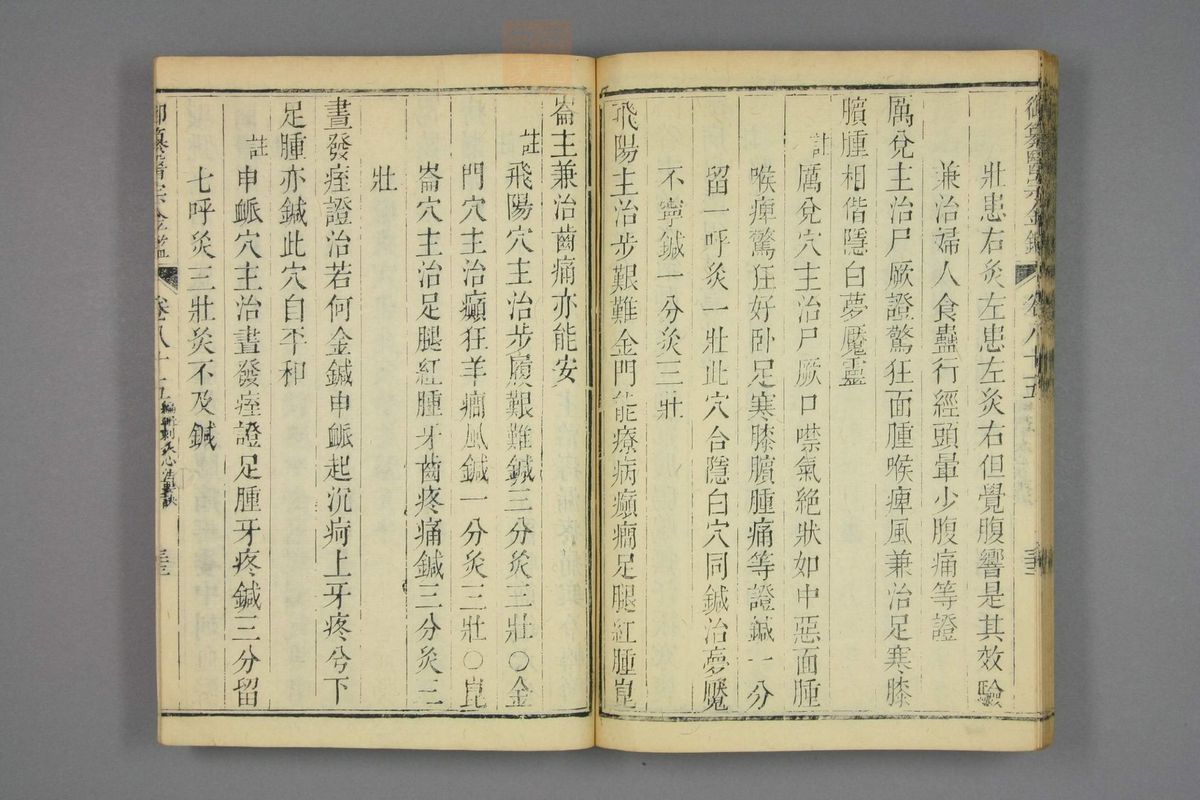 御纂醫宗金鑑 卷八十五
壯患右灸左患左灸右但覺腹響是其效驗
兼治婦人食蠱行經頭暈少腹痛等證
厲兌主治尸厥證驚狂面腫喉痺風兼治足寒膝
臏腫相偕隱白夢魘靈
註厲兌穴主治尸厥口噤氣絶狀如中惡面腫
喉痺驚狂好卧足寒膝臏腫痛等證鍼一分
留一呼灸一壯此穴合隱白穴同鍼治夢魘
不寧鍼一分灸三壯
飛陽主治步艱難金門能療病癲癇足腿紅腫崑
崙主兼治齒痛亦能安
註飛陽穴主治步履艱難鍼三分灸三壯〇金
門穴主治癲狂羊癇風鍼一分灸三壯〇崑
崙穴主治足腿紅腫牙齒疼痛鍼三分灸三
壯
晝發痓證治若何金鍼申脈起沉疴上牙疼兮下
足腫亦鍼此穴自平和
註申脈穴主治晝發痓證足腫牙疼鍼三分留
七呼灸三壯灸不及鍼
御纂醫宗金鑑 卷八十五 編輯刺灸心法要訣